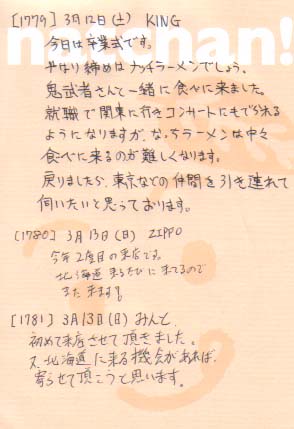 [1779] 3月12日(土) KING
nacchan!
今日は卒業式です。
やはり締めはナッチラーメンでしょう。
鬼武者さんと一緒に食べに来ました。
就職で関東に行きコンサートにもでられる
ようになりますが、なっちラーメンは中々
食べに来るのが難しくなります。
戻りましたら、東京などの仲間を引き連れて
伺いたいと思っております。
[1780] 3月13日(日) ZIPPO
今年2度目の来店です。
北海道来るたびに来てるので
また来ます。
[1781] 3月13日(日) みんと
初めて来店させて頂きました。
又、北海道に来る機会があれば、
寄らせて頂こうと思います。